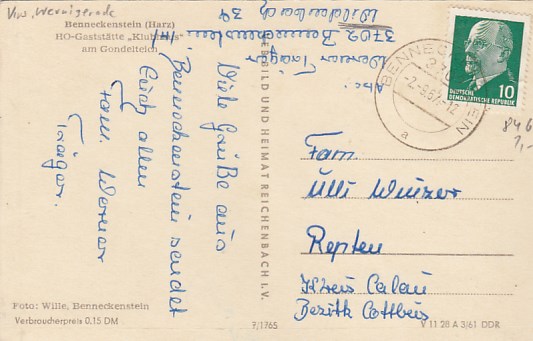 Kr. Wernigerode
Benneckenstein (Harz)
HO-Gaststätte „Klubhaus“
am Gondelteich
Viele Grüße aus
Benneckenstein sendet
Euch allen
Fam. Werner
Träger.
Abs:
Werner Träger
3702 Benneckenstein /H.
Waldschlößch 34
BILD UND HEIMAT REICHENBACH I. V.
BENNECKENSTEIN
-2.-8.67.-12
a
10
DEUTSCHE
DEMOKRATISCHE REPUBLIK
846
1,-
Fam.
Ulli Winzer
Repten
Kreis Calau
Bezirk Cottbus
Foto: Wille, Benneckenstein
Verbraucherpreis 0,15 DM
7/1765
V 11 28 A 3/61 DDR